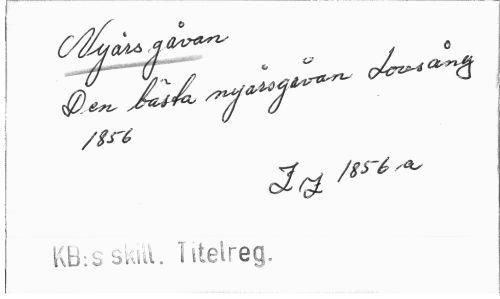 Nyårsgåvan
Den bästa nyårsgåvan Lovsång
1856
1856 a
KB:s skill. Titelreg.